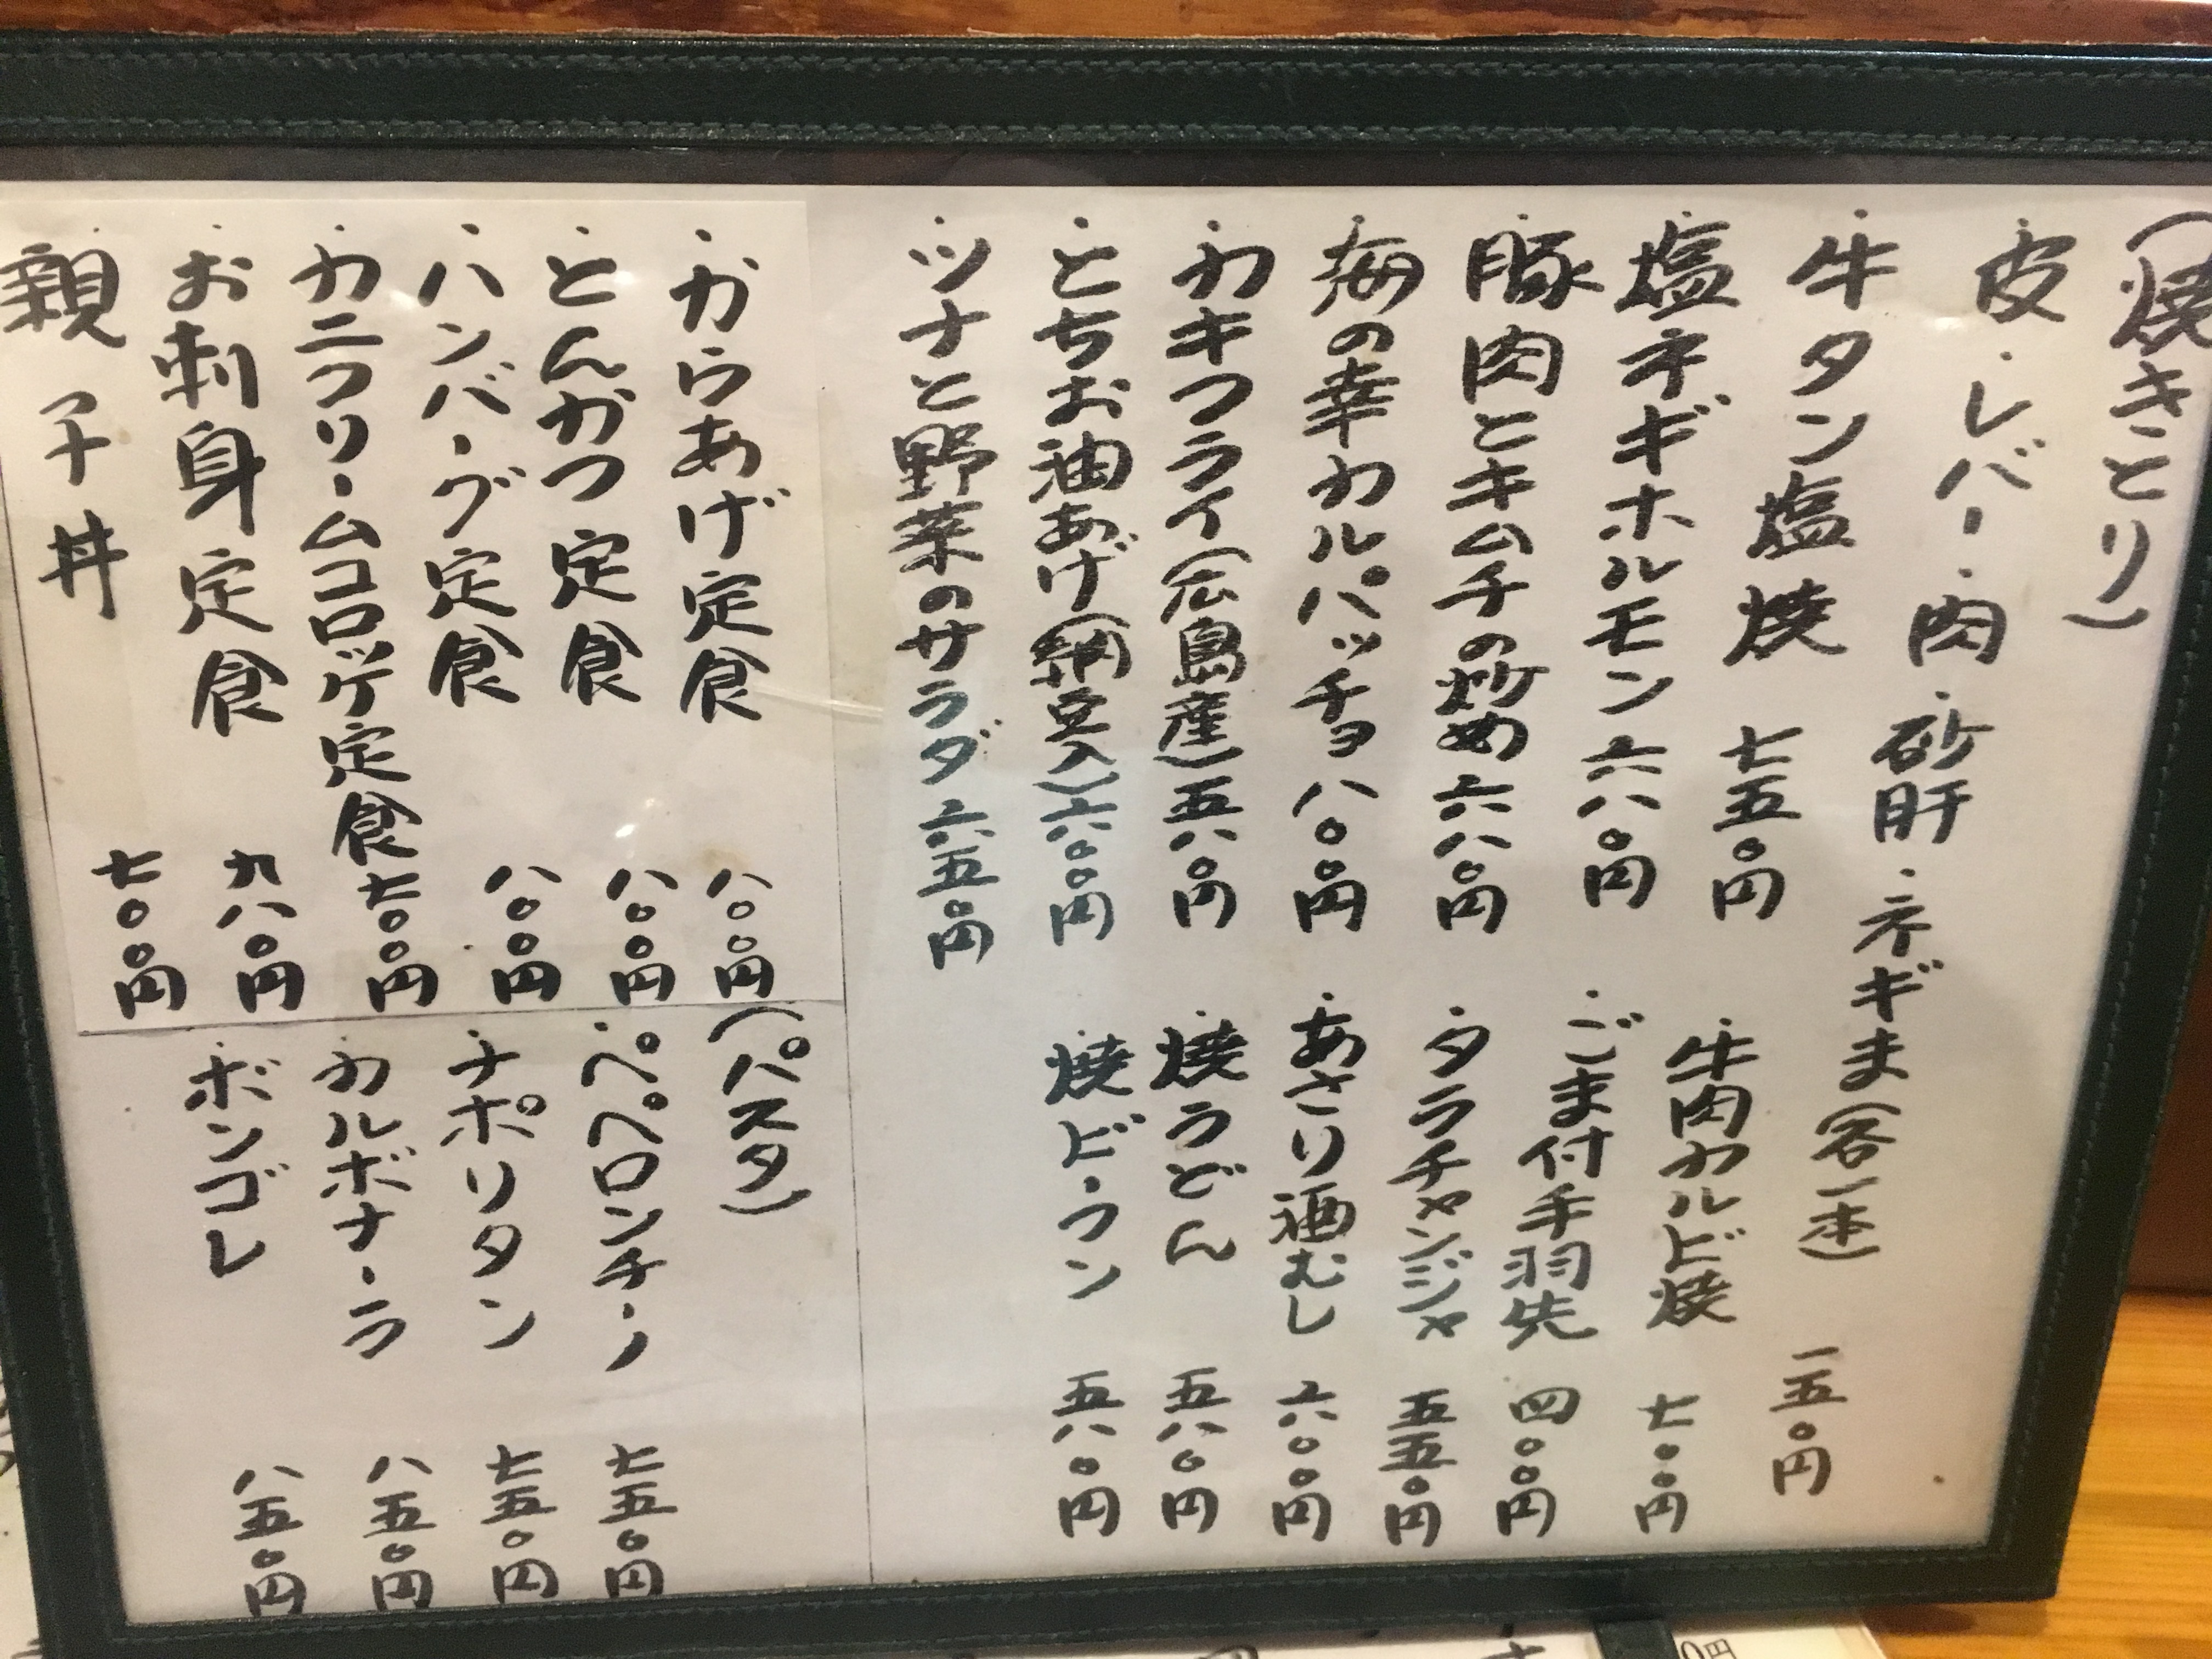 (焼きとり)
皮・レバー・肉・砂肝・ネギま(各一本) 一五〇円
・牛タン塩焼 七五〇円
・塩ネギホルモン 六八〇円
・豚肉とキムチの炒め 六八〇円
・海の幸カルパッチョ 八〇〇円
・カキフライ(広島産) 五八〇円
・とちお油あげ(納豆入) 六〇〇円
・ツナと野菜のサラダ 六五〇円
・牛肉カルビ焼 七〇〇円
・ごま付手羽先 四〇〇円
・タラチャンジャ 五五〇円
・あさり酒むし 六〇〇円
・焼うどん 五八〇円
・焼ビーフン 五八〇円
・からあげ定食 八〇〇円
・とんかつ定食 八〇〇円
・ハンバーグ定食 八〇〇円
・カニクリームコロッケ定食 七〇〇円
・お刺身定食 九八〇円
・親子丼 七〇〇円
(パスタ)
・ペペロンチーノ 七五〇円
・ナポリタン 七五〇円
・カルボナーラ 八五〇円
・ボンゴレ 八五〇円